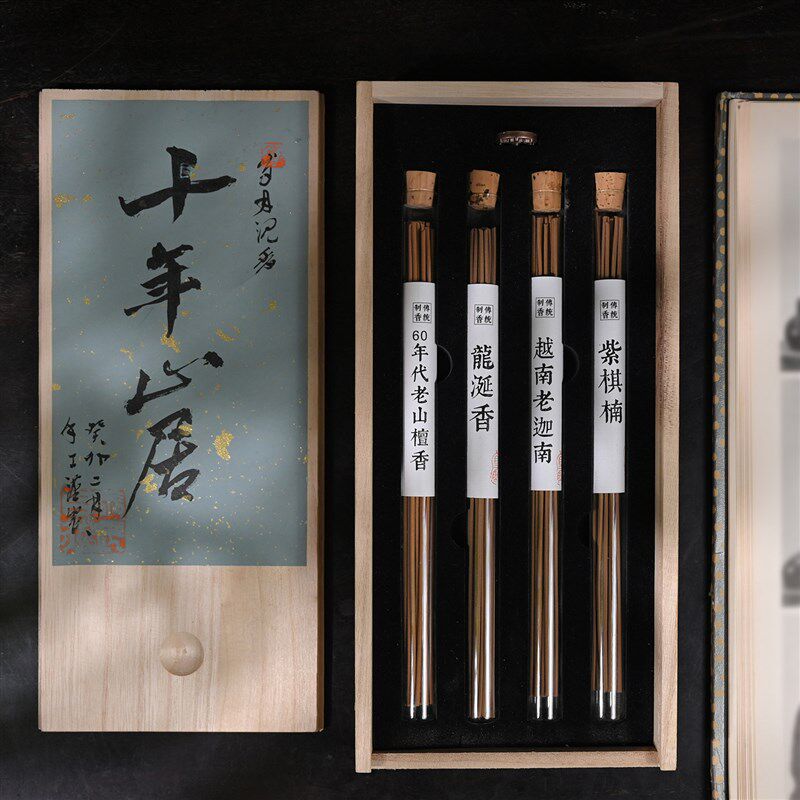 岁月沉香
十年山居
癸卯二月
手工
傳統
制香
60年代老山檀香
傳統
制香
龍涎香
傳統
制香
越南老迦南
傳統
制香
紫棋楠